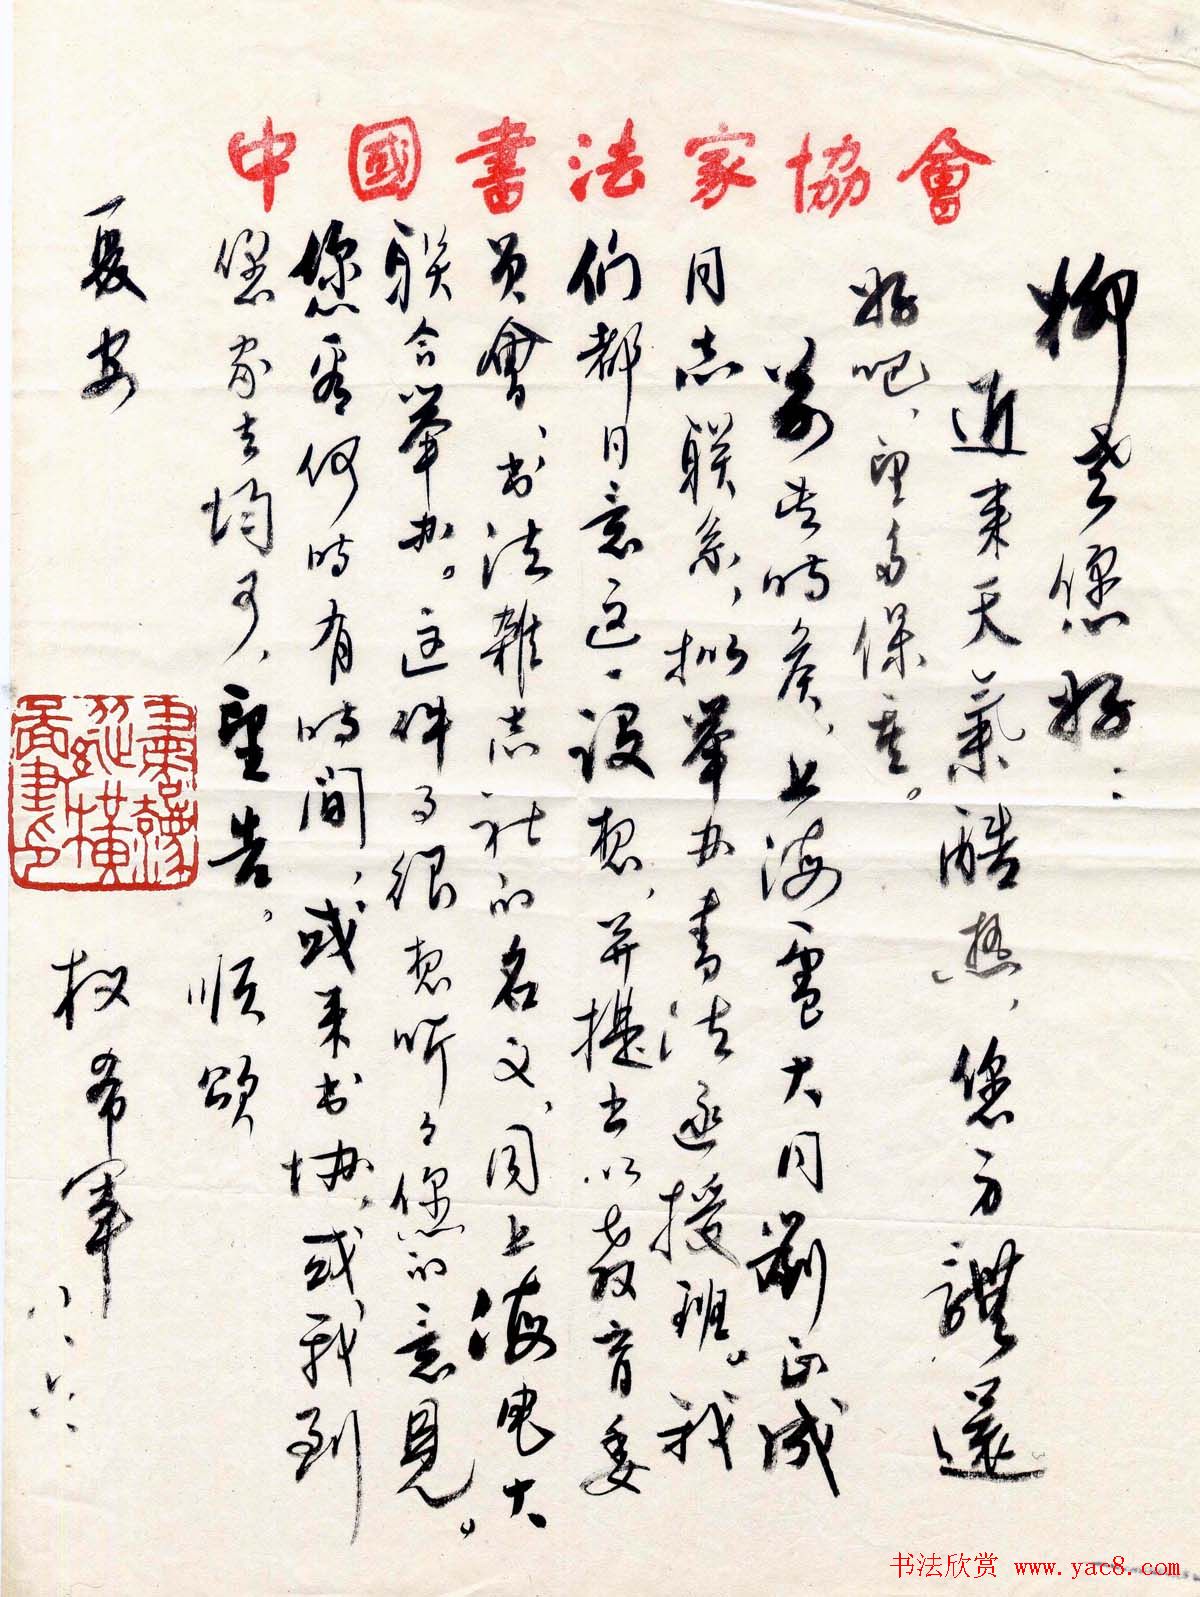 中國書法家協會
柳老您好：
近来天氣酷热，您方體還
好吧，望多保重。
前些時候，上海電大同劉正成
同志联系，拟举办書法函授班。我
们都同意这一设想，并提出以教育委
员會、书法雜志社的名义，同上海电大
联合举办。这件事很想听听您的意见。
您看何时有时间，或来书协，或我到
您家去均可，望告。順頌
夏安
权希军
八·六
书法欣赏 www.yac8.com